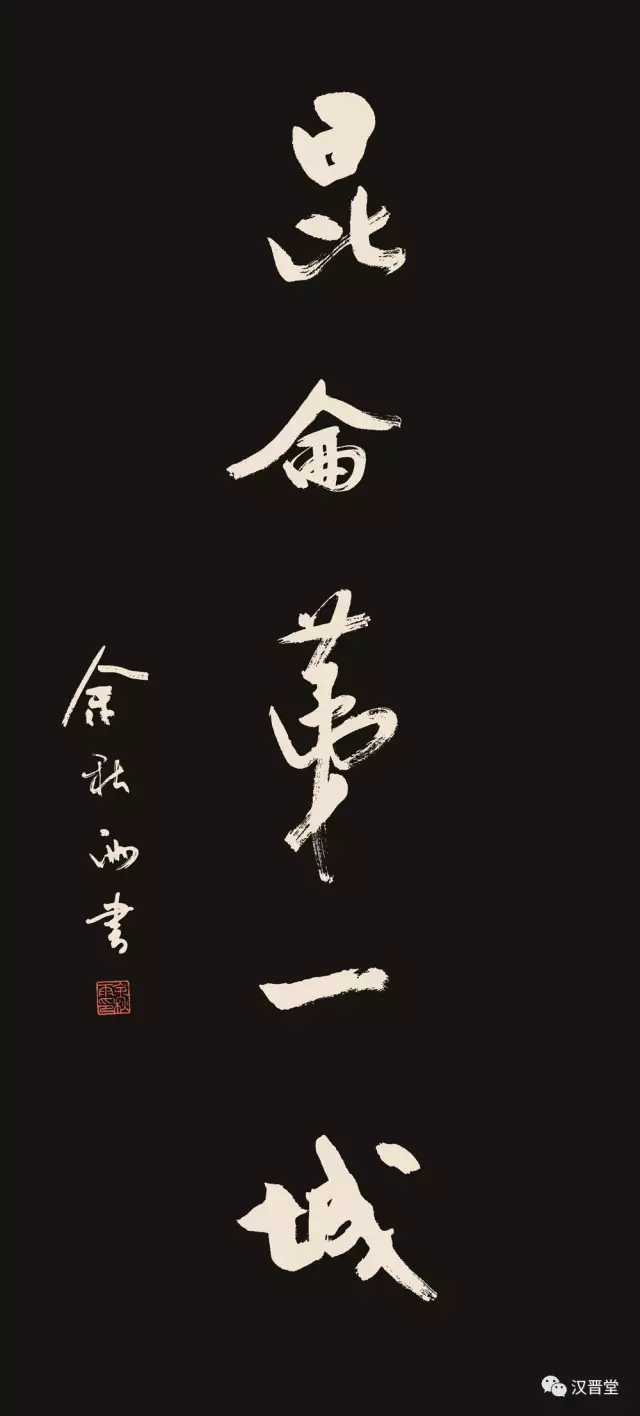 昆侖第一城
余秋雨書
余秋雨印
汉晋堂